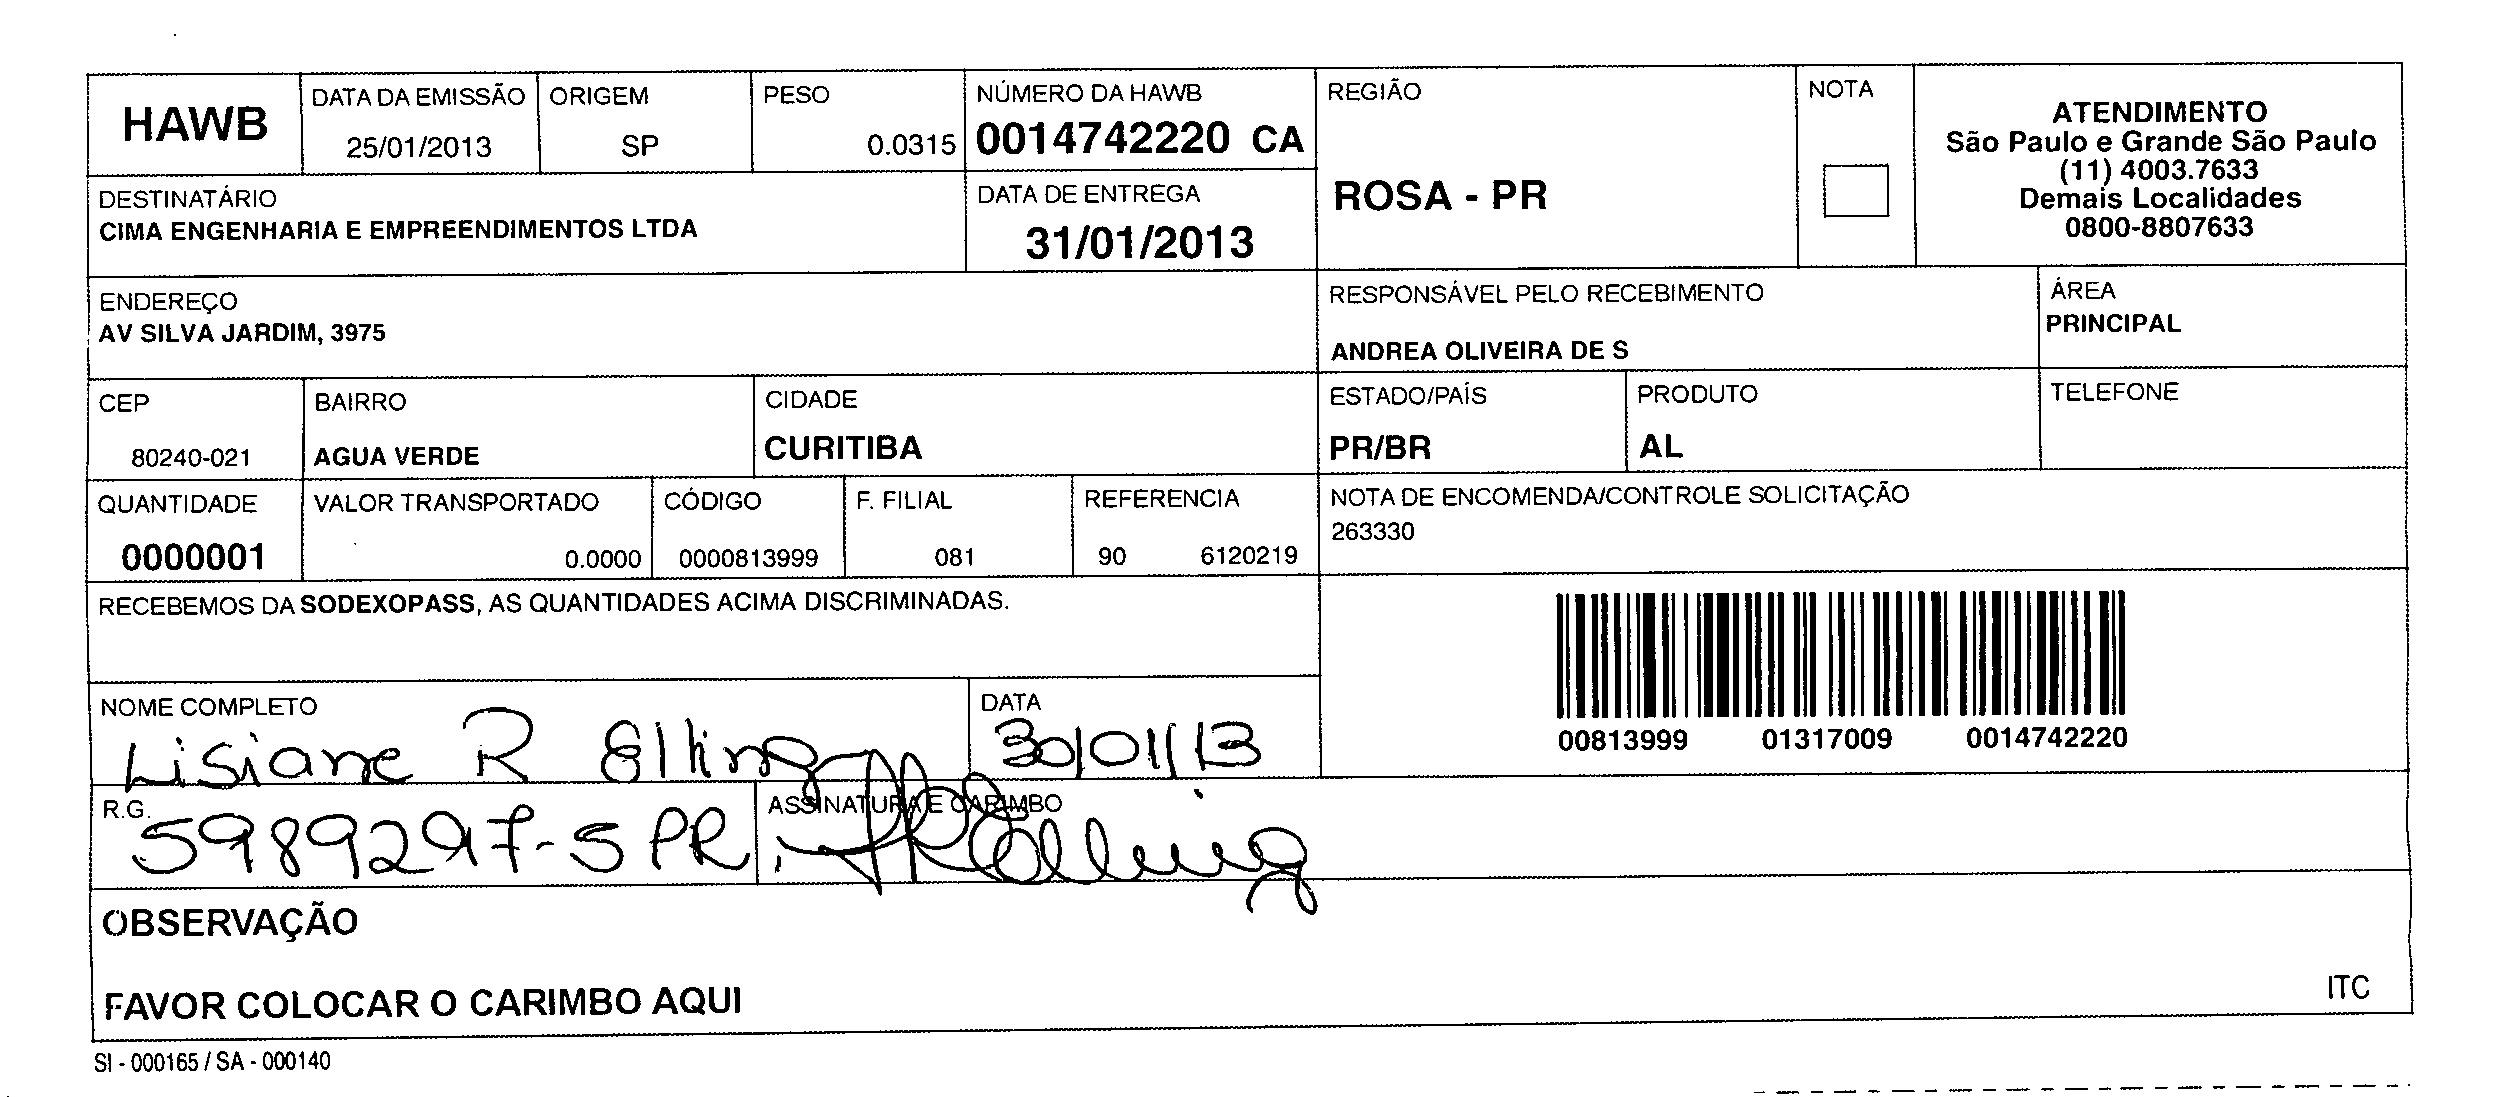 HAWB
DATA DA EMISSÃO
25/01/2013
ORIGEM
SP
PESO
0.0315
NÚMERO DA HAWB
0014742220 CA
REGIÃO
ROSA - PR
NOTA
ATENDIMENTO
São Paulo e Grande São Paulo
(11) 4003.7633
Demais Localidades
0800-8807633
DESTINATÁRIO
CIMA ENGENHARIA E EMPREENDIMENTOS LTDA
DATA DE ENTREGA
31/01/2013
ENDEREÇO
AV SILVA JARDIM, 3975
RESPONSÁVEL PELO RECEBIMENTO
ANDREA OLIVEIRA DE S
ÁREA
PRINCIPAL
CEP
80240-021
BAIRRO
AGUA VERDE
CIDADE
CURITIBA
ESTADO/PAÍS
PR/BR
PRODUTO
AL
TELEFONE
QUANTIDADE
0000001
VALOR TRANSPORTADO
0.0000
CÓDIGO
0000813999
F. FILIAL
081
REFERENCIA
90 6120219
NOTA DE ENCOMENDA/CONTROLE SOLICITAÇÃO
263330
RECEBEMOS DA SODEXOPASS, AS QUANTIDADES ACIMA DISCRIMINADAS.
00813999 01317009 0014742220
NOME COMPLETO
Lisiane R Elling
DATA
30/01/13
R.G.
5989297-5 PR
ASSINATURA E CARIMBO
OBSERVAÇÃO
FAVOR COLOCAR O CARIMBO AQUI
ITC
SI - 000165 / SA - 000140